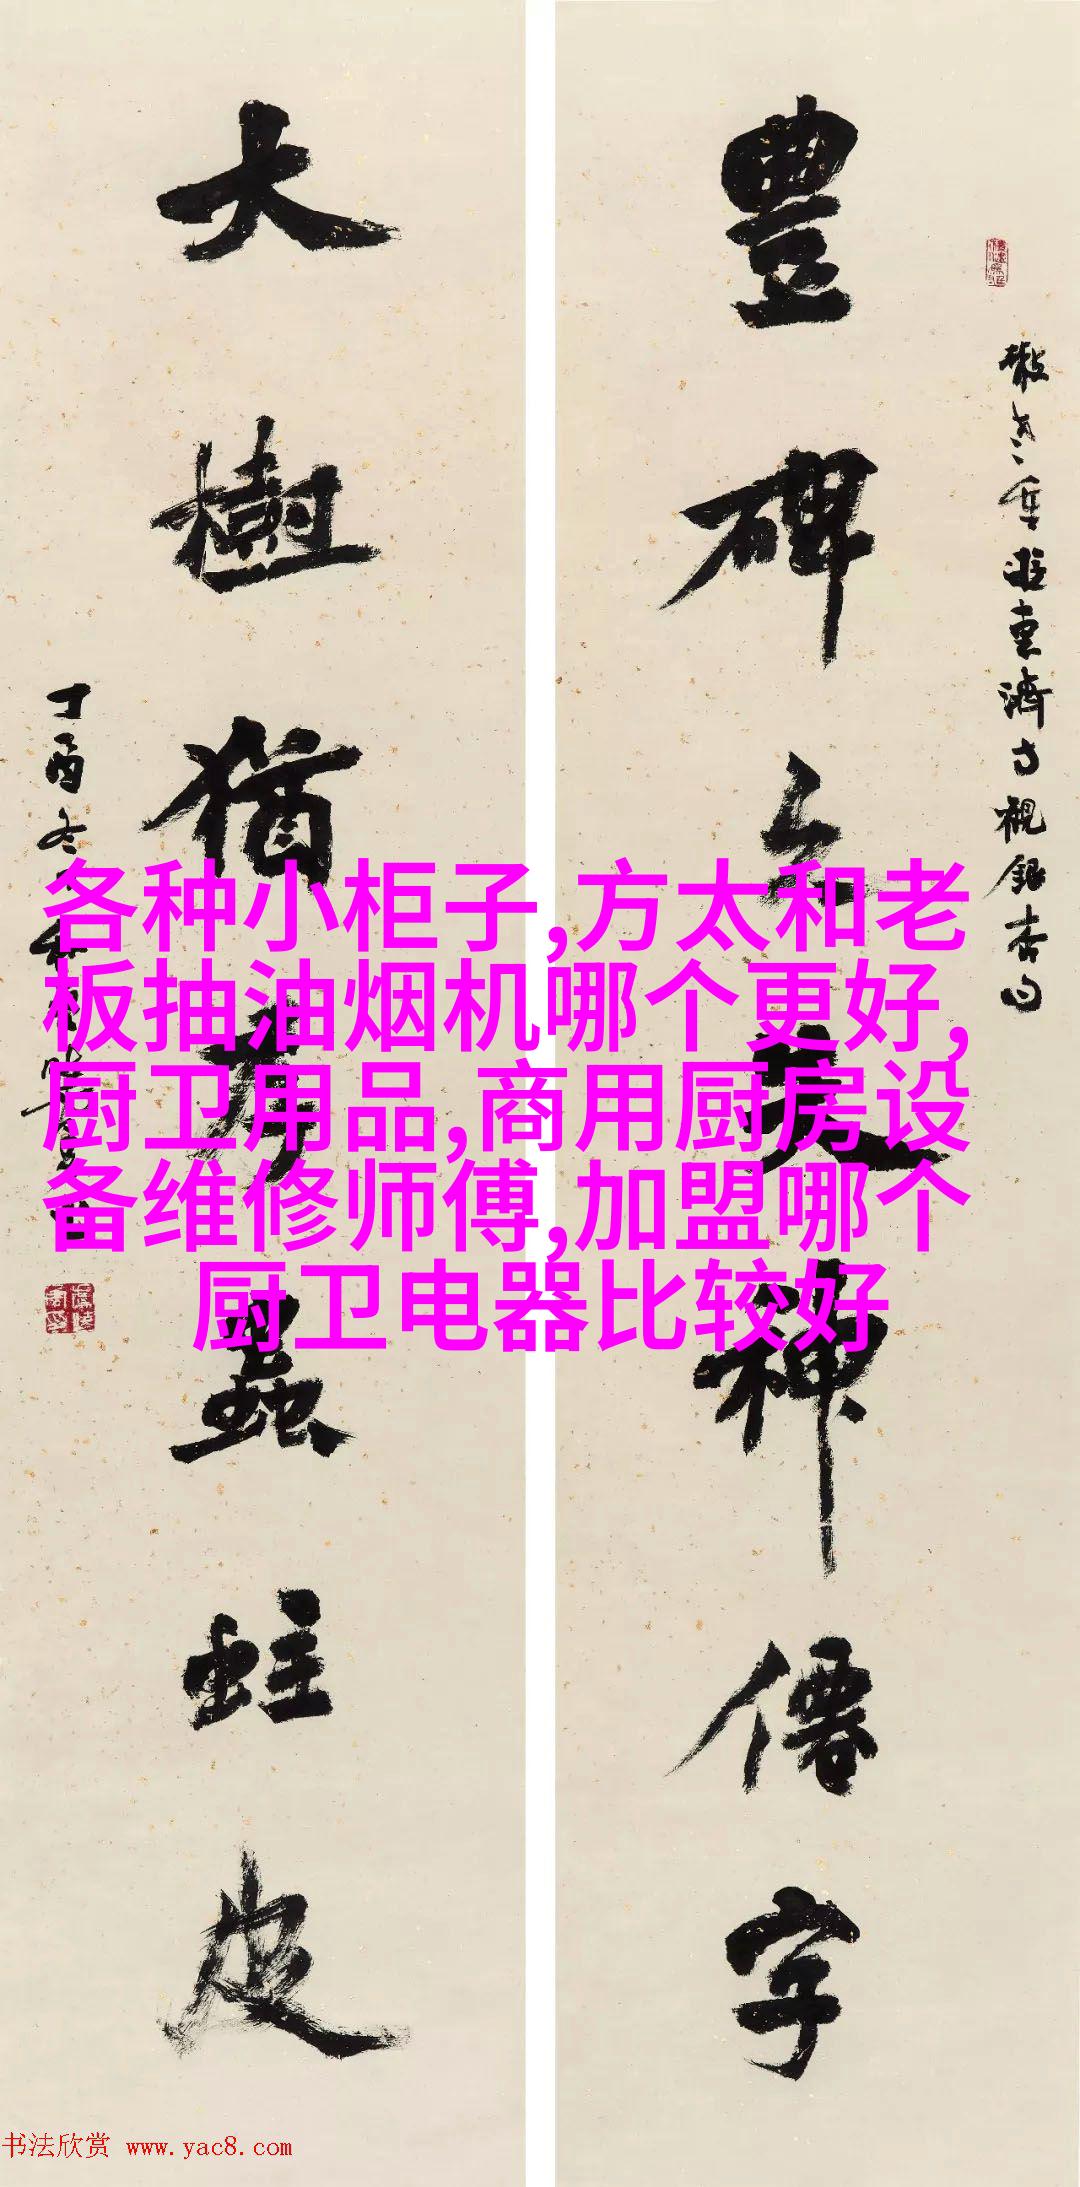 豐碑無失神僊字
大樹猶芳蠹蛀皮
丁酉冬
各种小柜子,方太和老
板抽油烟机哪个更好,
厨卫用品,商用厨房设
备维修师傅,加盟哪个
厨卫电器比较好
书法欣赏 www.yac8.com